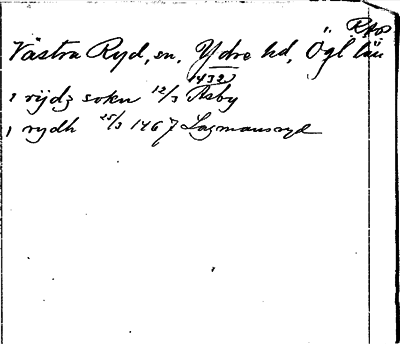 RAp
Västra Ryd, sn, Ydre hd, Ögl län
i rijdz sokn 12/3 1432 Asby
i rydh 25/3 1467 Lagmansryd